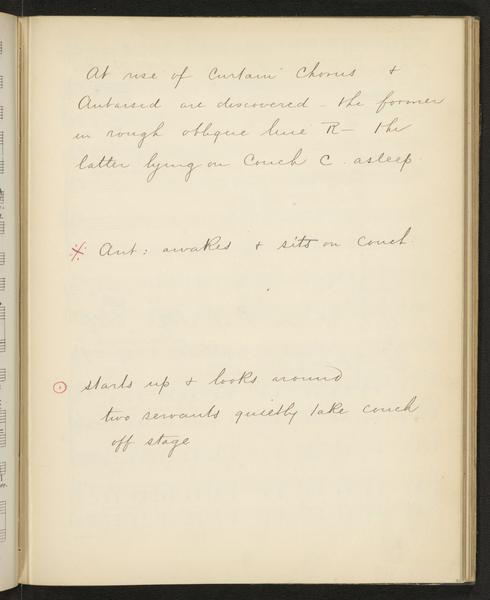 At rise of Curtain Chorus +
Antarsid are discovered - the former
in rough oblique line R - the
latter lying on Couch C. asleep.
※ Ant: awakes + sits on couch.
⊙ starts up + looks around
two servants quietly take couch
off stage